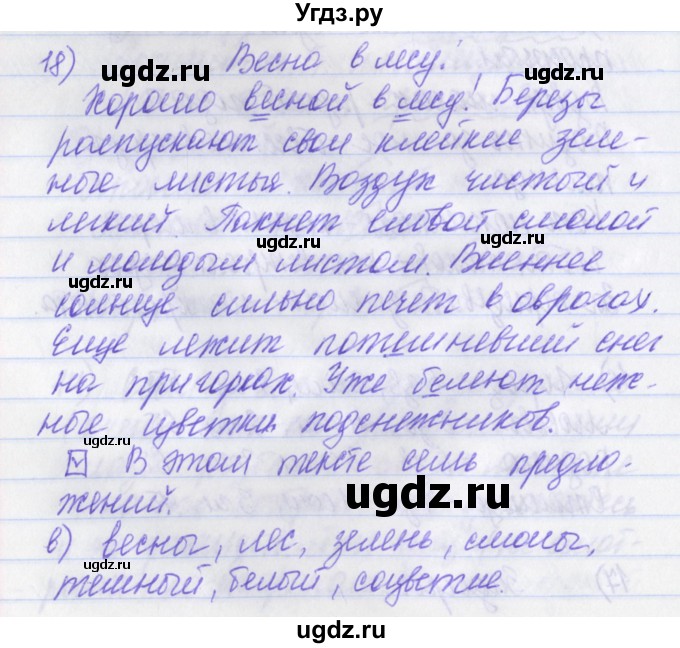 Угдз.ру
18) Весна в лесу.
Хорошо весной в лесу! Березы
распускают свои клейкие зеле-
ные листья. Воздух чистый и
легкий. Пахнет еловой смолой
и молодым листом. Весеннее
солнце сильно печет в оврагах.
Еще лежит потемневший снег
на пригорках. Уже белеют неж-
ные цветки подснежников.
В этом тексте семь предло-
жений.
в) весны, лес, зелень, смолы,
темный, белый, соцветие.
ugdz.ru
ugdz.ru
ugdz.ru
ugdz.ru
ugdz.ru
ugdz.ru
ugdz.ru
ugdz.ru
ugdz.ru
ugdz.ru
ugdz.ru